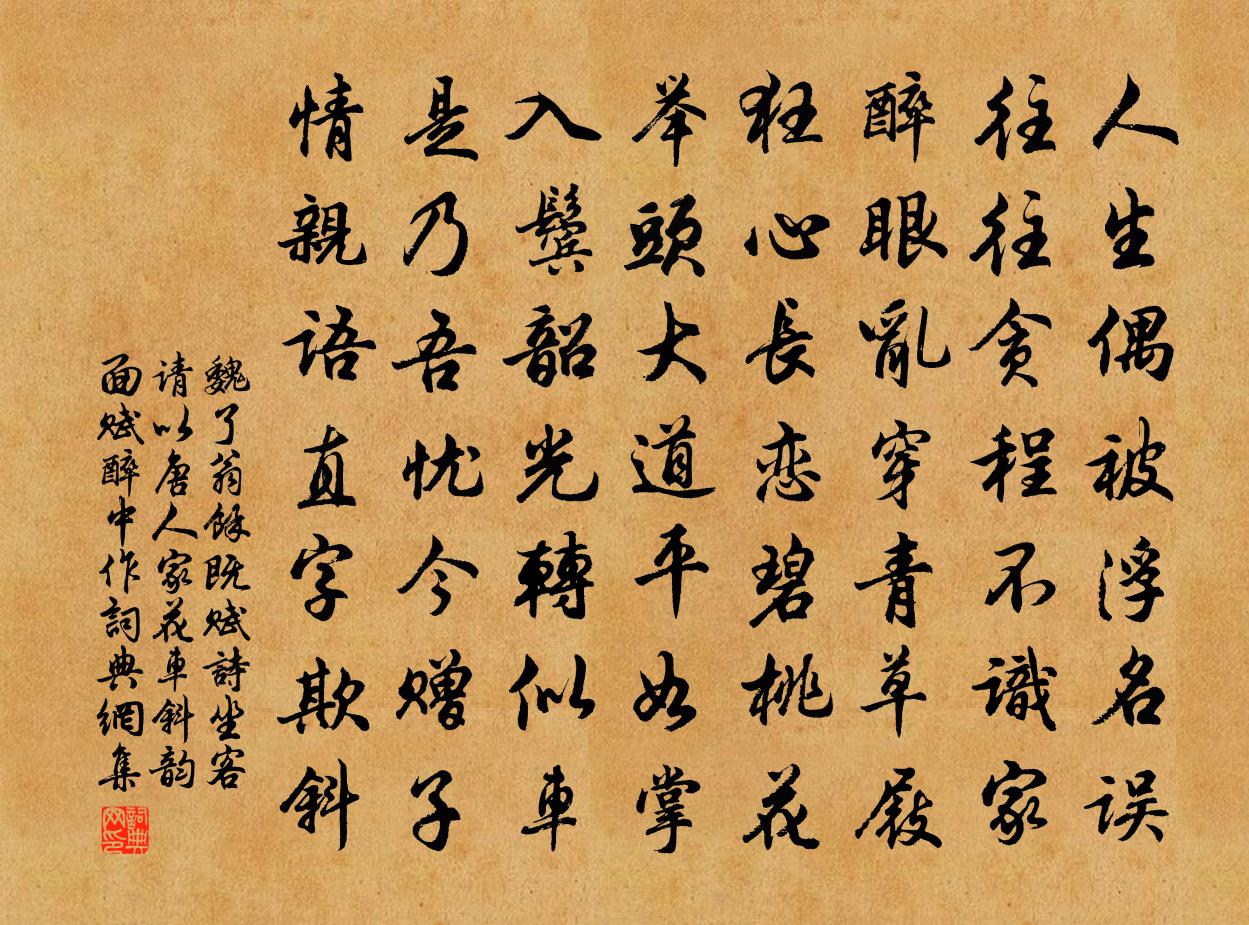 人生偶被浮名误
往往贪程不識家
醉眼亂穿青草屐
狂心長恋碧桃花
举頭大道平如掌
入鬓韶光轉似車
是乃吾忧今赠子
情親語直字欺斜
魏了翁餘既赋詩坐客
请以唐人家花車斜韵
面赋醉中作詞典網集
詞典网印